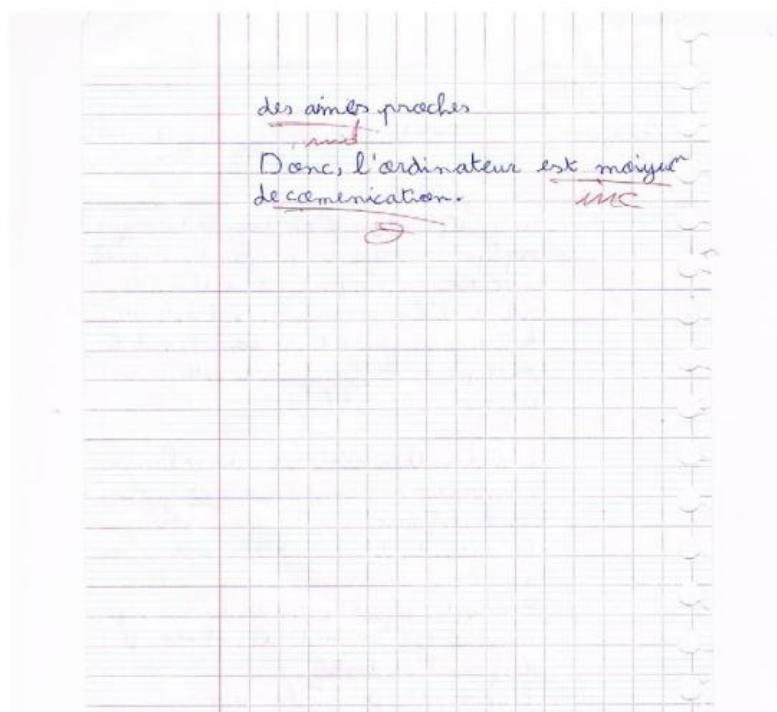 des aimes proches
Donc, l'ordinateur est moiyen
de comenication.
inc